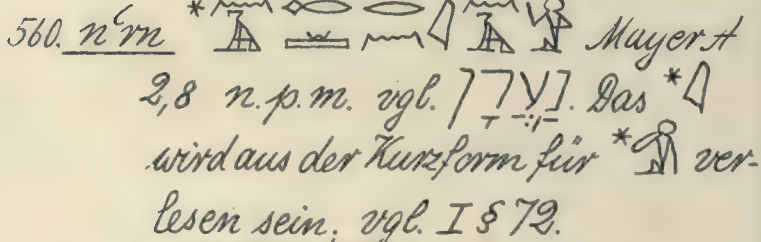 560. nʿrn * Mayer A
2,8 n.p.m. vgl. נַעֲרָן. Das *
wird aus der Kurzform für * ver-
lesen sein, vgl. I § 72.